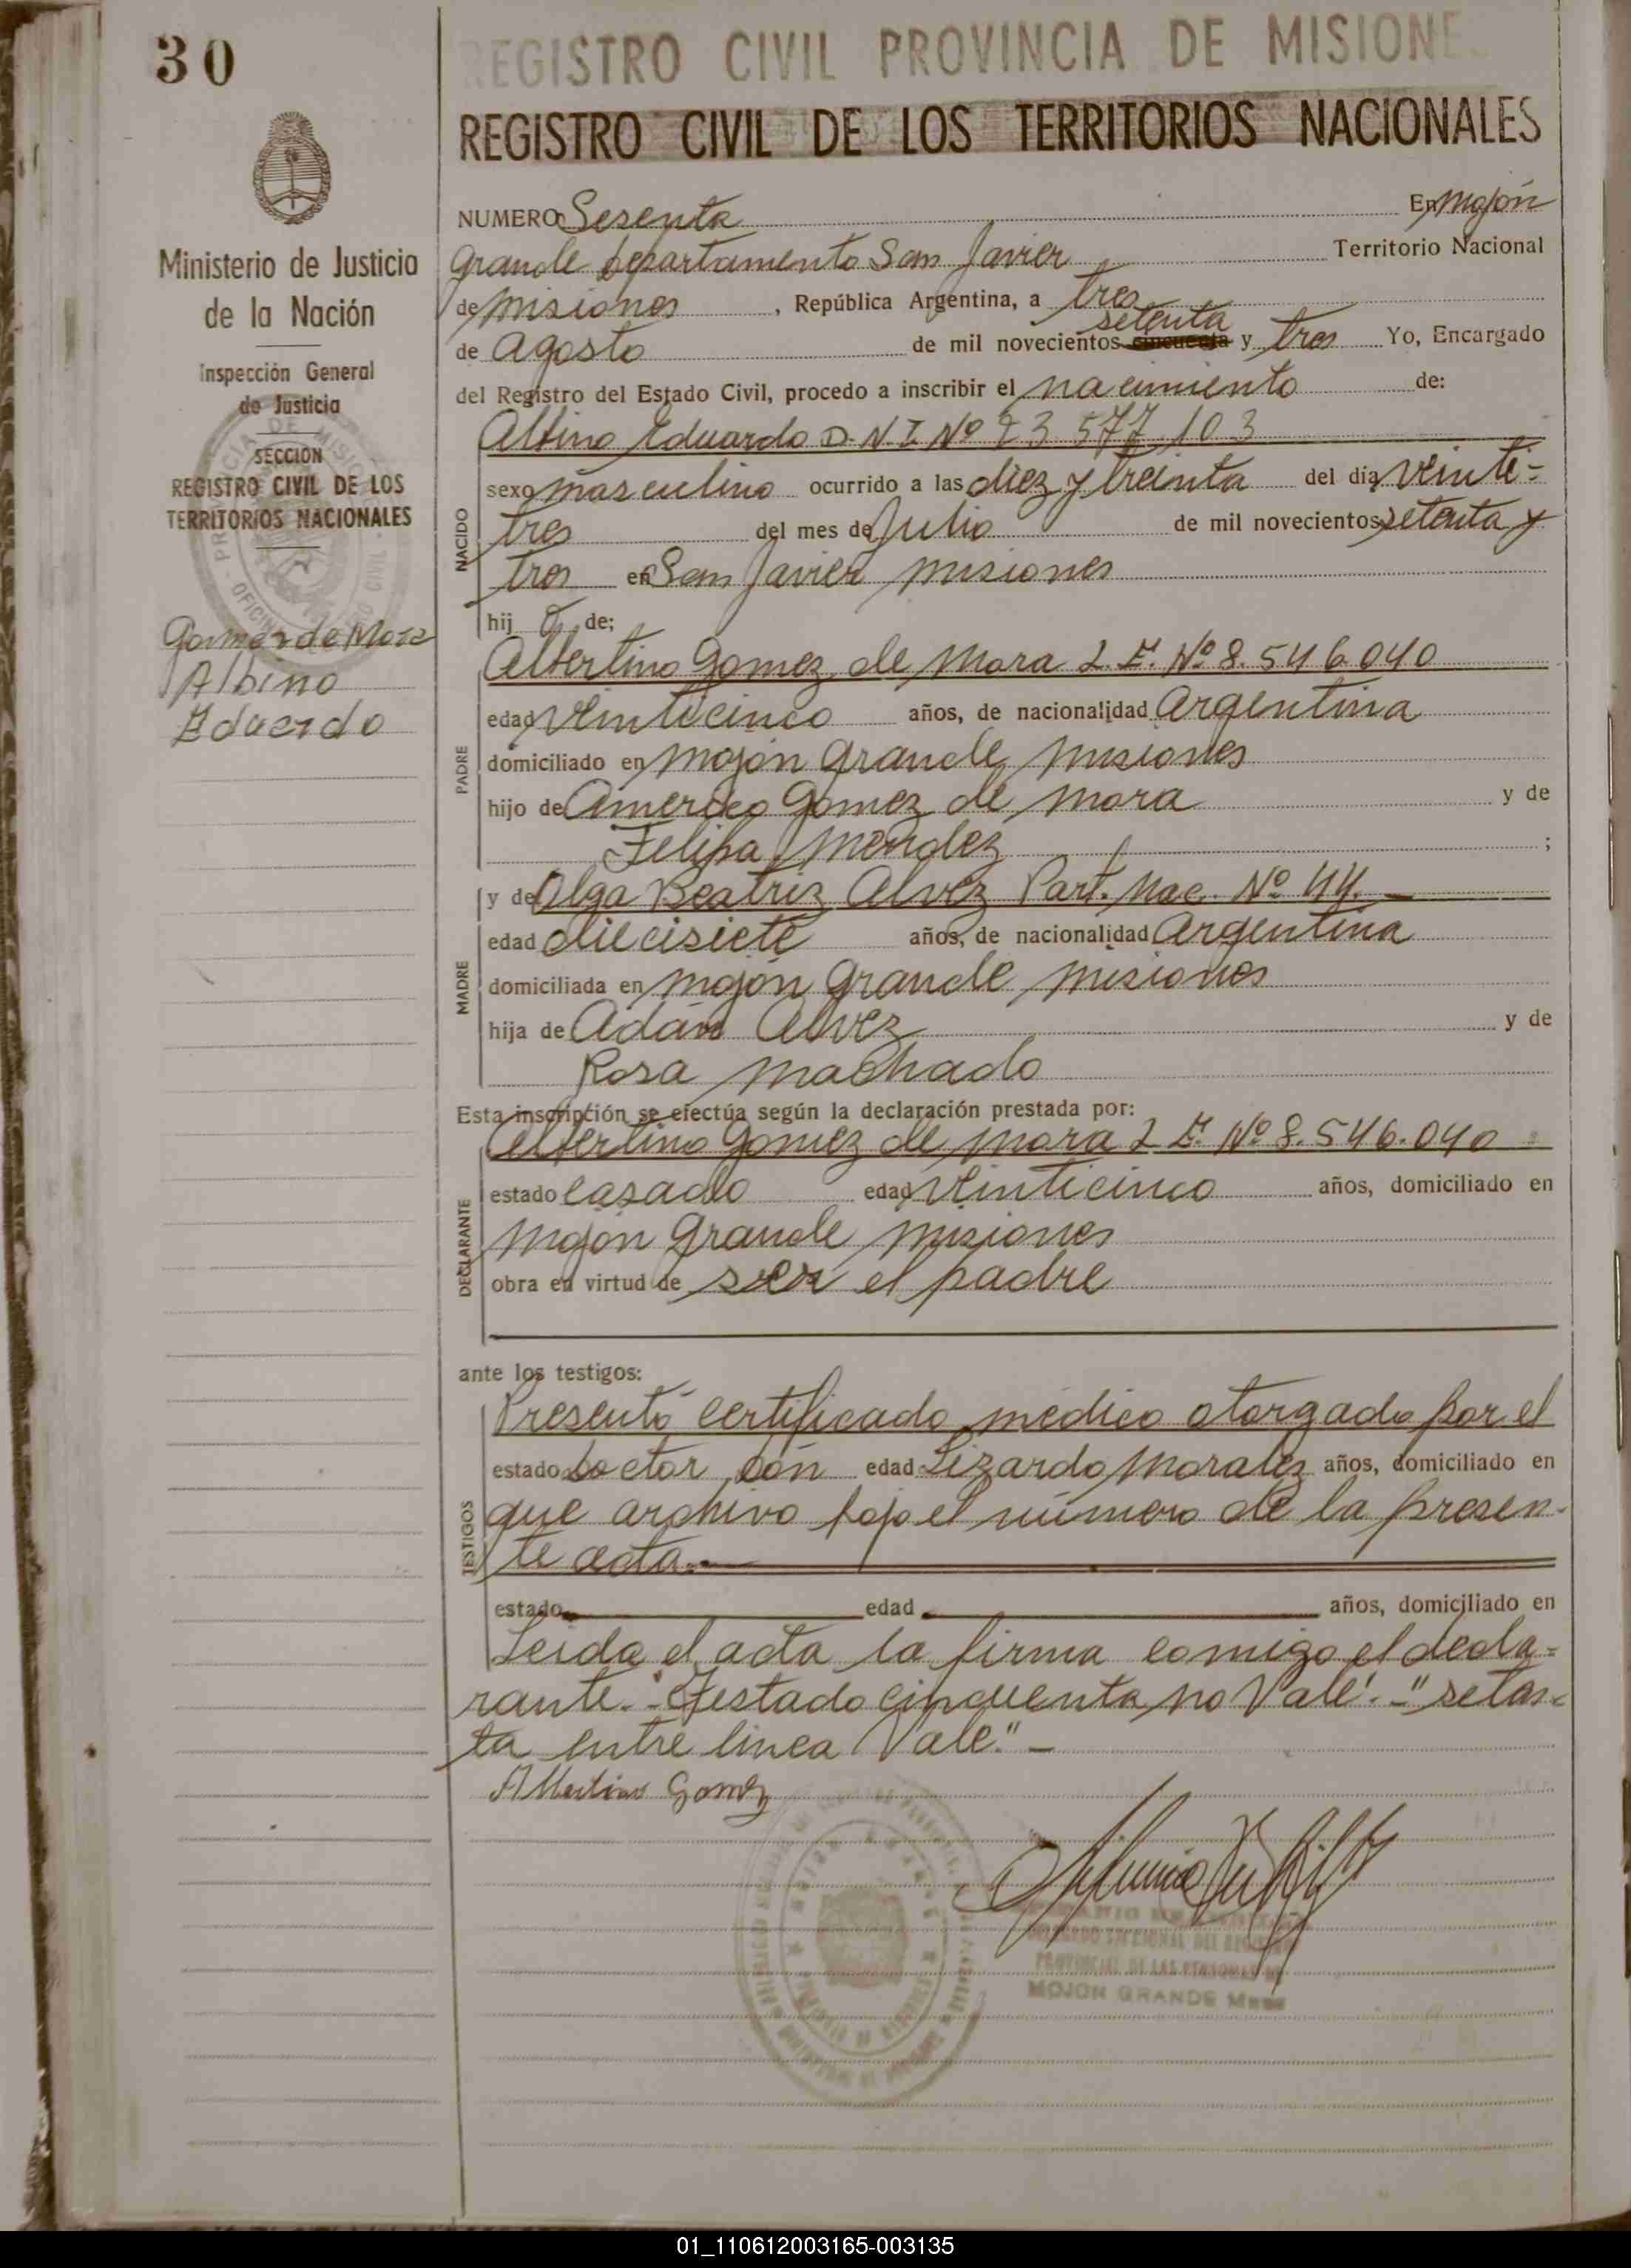 30
REGISTRO CIVIL PROVINCIA DE MISIONE
REGISTRO CIVIL DE LOS TERRITORIOS NACIONALES
Ministerio de Justicia
de la Nación
Inspección General
de Justicia
SECCION
REGISTRO CIVIL DE LOS
TERRITORIOS NACIONALES
Gomez de Mora
Albino
Eduardo
NUMERO Sesenta En Mojón
Grande Departamento San Javier Territorio Nacional
de Misiones, República Argentina, a tres
setenta
de Agosto de mil novecientos cincuenta y tres Yo, Encargado
del Registro del Estado Civil, procedo a inscribir el nacimiento de:
Albino Eduardo D.N.I. Nº 23.577.103
NACIDO
sexo masculino ocurrido a las diez y treinta del día veinti-
tres del mes de Julio de mil novecientos setenta y
tres en San Javier Misiones
hij o de;
PADRE
Albertino Gomez de Mora L.E. Nº 8.546.040
edad veinticinco años, de nacionalidad Argentina
domiciliado en Mojón Grande Misiones
hijo de Americo Gomez de Mora y de
Felipa Mendez ;
MADRE
y de Olga Beatriz Alvez Part. Nac. Nº 44.
edad diecisiete años, de nacionalidad Argentina
domiciliada en Mojón Grande Misiones
hija de Adán Alvez y de
Rosa Machado
Esta inscripción se efectúa según la declaración prestada por:
DECLARANTE
Albertino Gomez de Mora L.E. Nº 8.546.040
estado casado edad veinticinco años, domiciliado en
Mojón Grande Misiones
obra en virtud de ser el padre
ante los testigos:
TESTIGOS
Presentó certificado médico otorgado por el
estado Doctor Don edad Lizardo Morales años, domiciliado en
que archivo bajo el número de la presen-
te acta.-
estado edad años, domiciliado en
Leida el acta la firma comigo el decla-
rante.- "Testado cincuenta no Vale".- "seten-
ta entre linea Vale."-
Albertino Gomez
DELEGADO SECCIONAL DEL REGISTRO
PROVINCIAL DE LAS PERSONAS
MOJON GRANDE Mnes
01_110612003165-003135